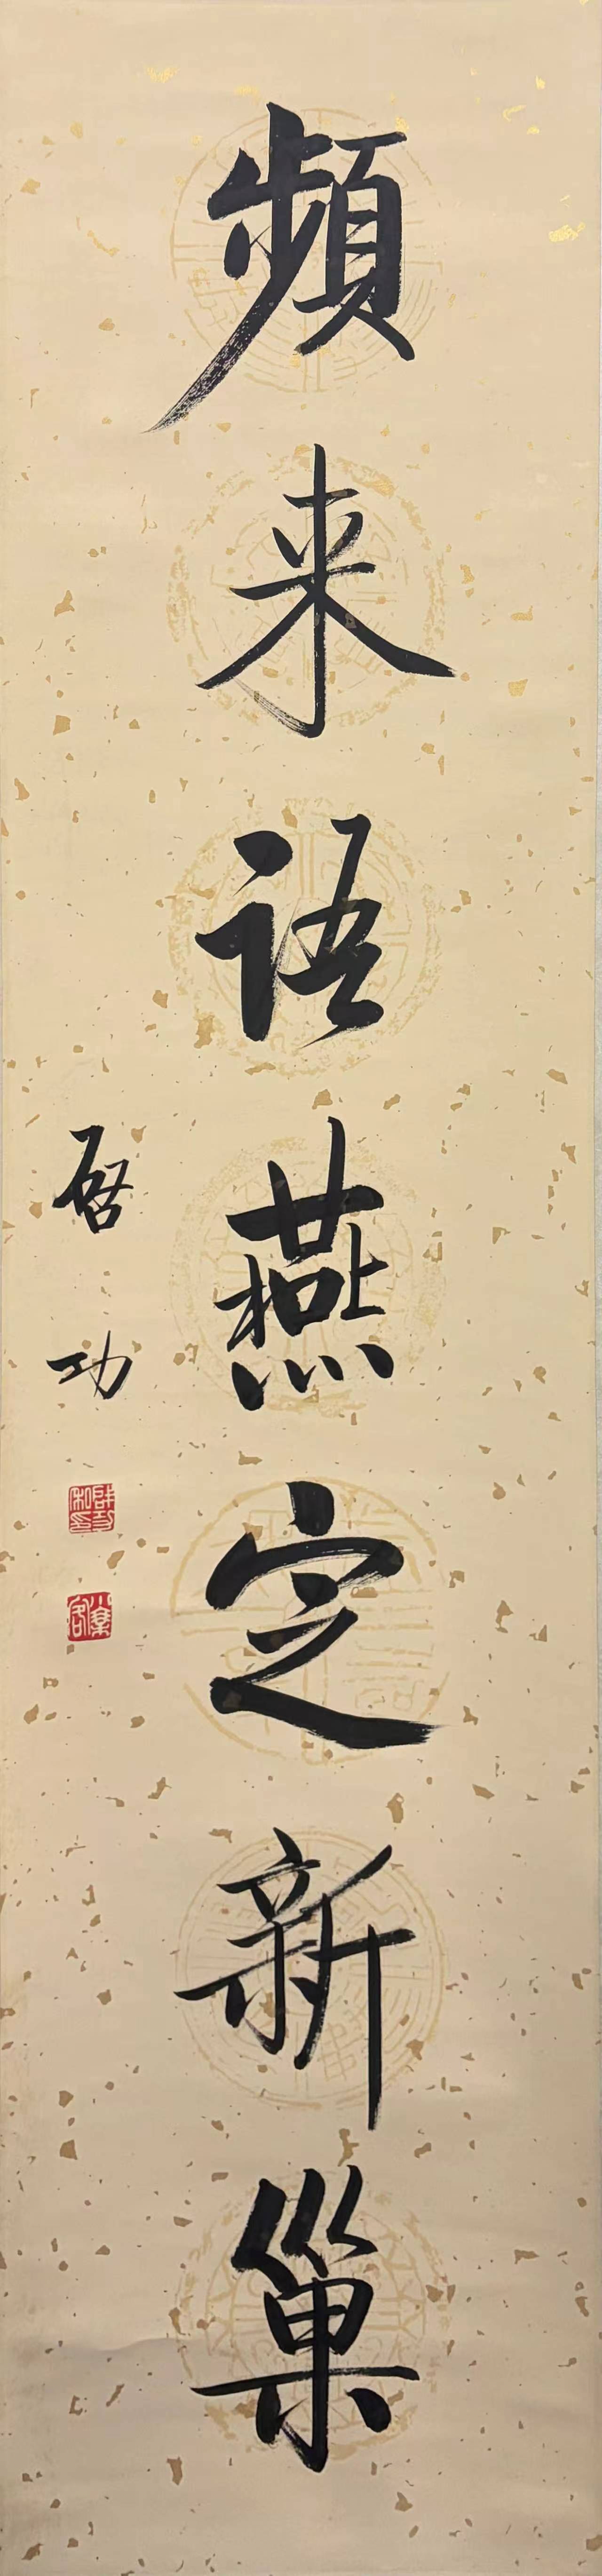 頻来语燕定新巢
啓功